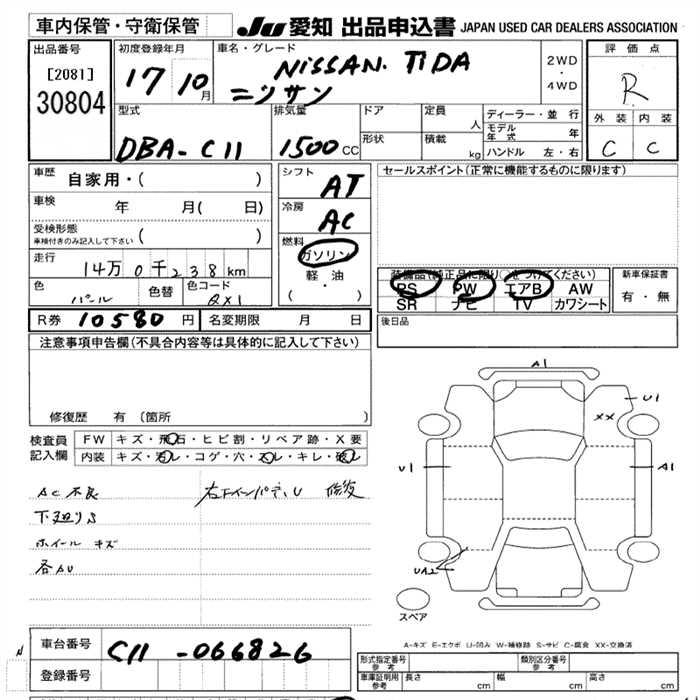 車内保管・守衛保管 JU 愛知 出品申込書 JAPAN USED CAR DEALERS ASSOCIATION
出品番号 初度登録年月 車名・グレード 評価点
[2081] 17 10月 NISSAN. TIDA 2WD・4WD R
30804 ニッサン
型式 排気量 ドア 定員 人 ディーラー・並行 外装 内装
DBA-C11 1500CC 形状 積載 kg モデル年式 年 C C
ハンドル 左・右
車歴 自家用・( ) シフト AT セールスポイント(正常に機能するものに限ります)
車検 年 月( 日) 冷房 AC
受検形態 ( )
車検付きのみ記入して下さい
燃料 ガソリン
軽・油
( ・ )
走行 14万0千238km
色 パール 色替 色コード QX1
装備品(純正品に限り○をつけてください) 新車保証書
PS PW エアB AW 有・無
SR ナビ TV カワシート
R券 10580円 名変期限 月 日 後日品
注意事項申告欄(不具合内容等は具体的に記入して下さい)
修復歴 有 (箇所 )
検査員記入欄 FW キズ・飛石・ヒビ割・リペア跡・X要
内装 キズ・汚レ・コゲ・穴・スレ・キレ・破レ
AC不良
下廻りS
ホイールキズ
各AU
修復
A1
U1
XX
U1
A1
UA2
スペア
A-キズ E-エクボ U-凹み W-補修跡 S-サビ C-腐食 XX-交換済
車台番号 C11-066826
登録番号
形式指定番号 参考 類別区分番号 参考
車庫証明用 参考 長さ cm 幅 cm 高さ cm